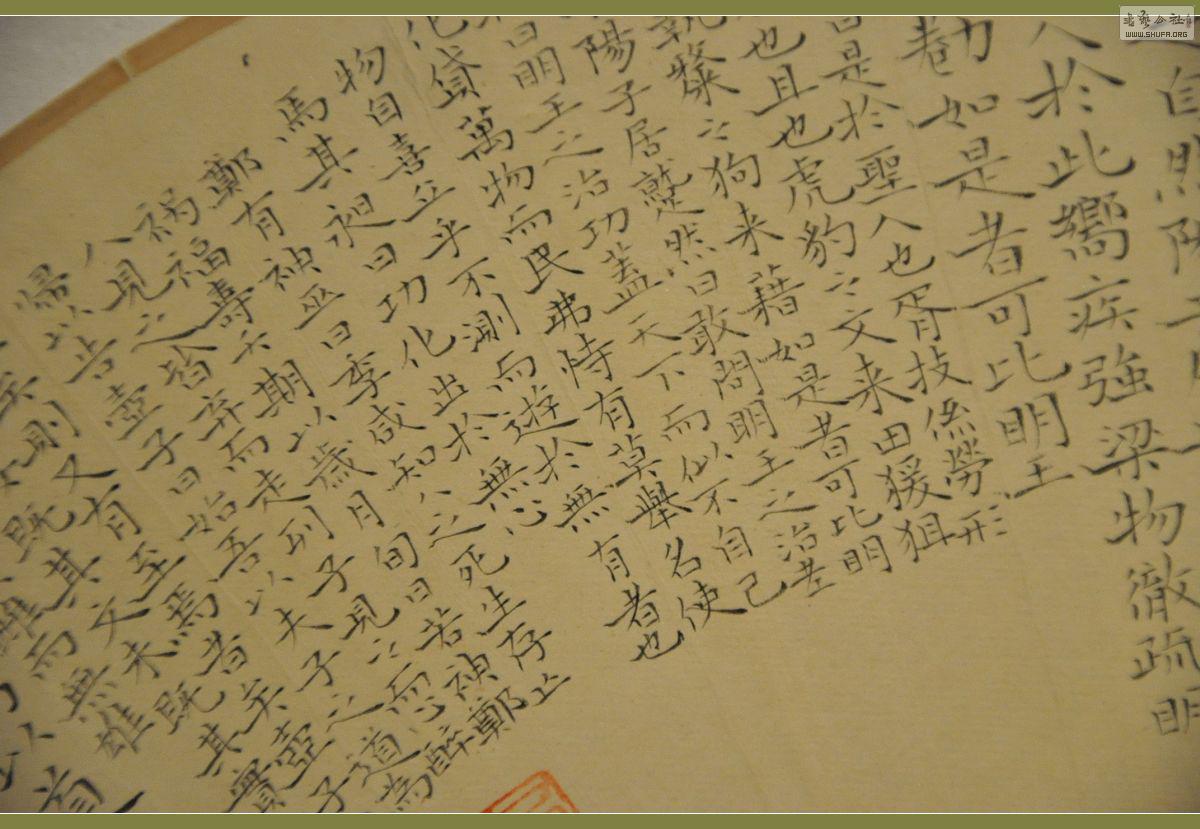 人於此嚮疾強梁物徹疏明
勌如是者可比明王
曰是於聖人也胥技係勞形
也且也虎豹之文来田猨狙
執斄之狗来藉如是者可比明
陽子居蹵然曰敢問明王之治老
曰明王之治功蓋天下而似不自己
化貸萬物而民弗恃有莫舉名使
物自喜立乎不測而遊於無有者也
馬其昶曰功化出於無心
鄭有神巫曰季咸知人之死生存亡
禍福壽夭期以歲月旬日若神鄭
人見之皆弃而走列子見之而心醉
歸以告壺子曰始吾以夫子之道為
矣則又有至焉者矣壺子
既其文未既其實
雌而無雄
WWW.SHUFA.ORG